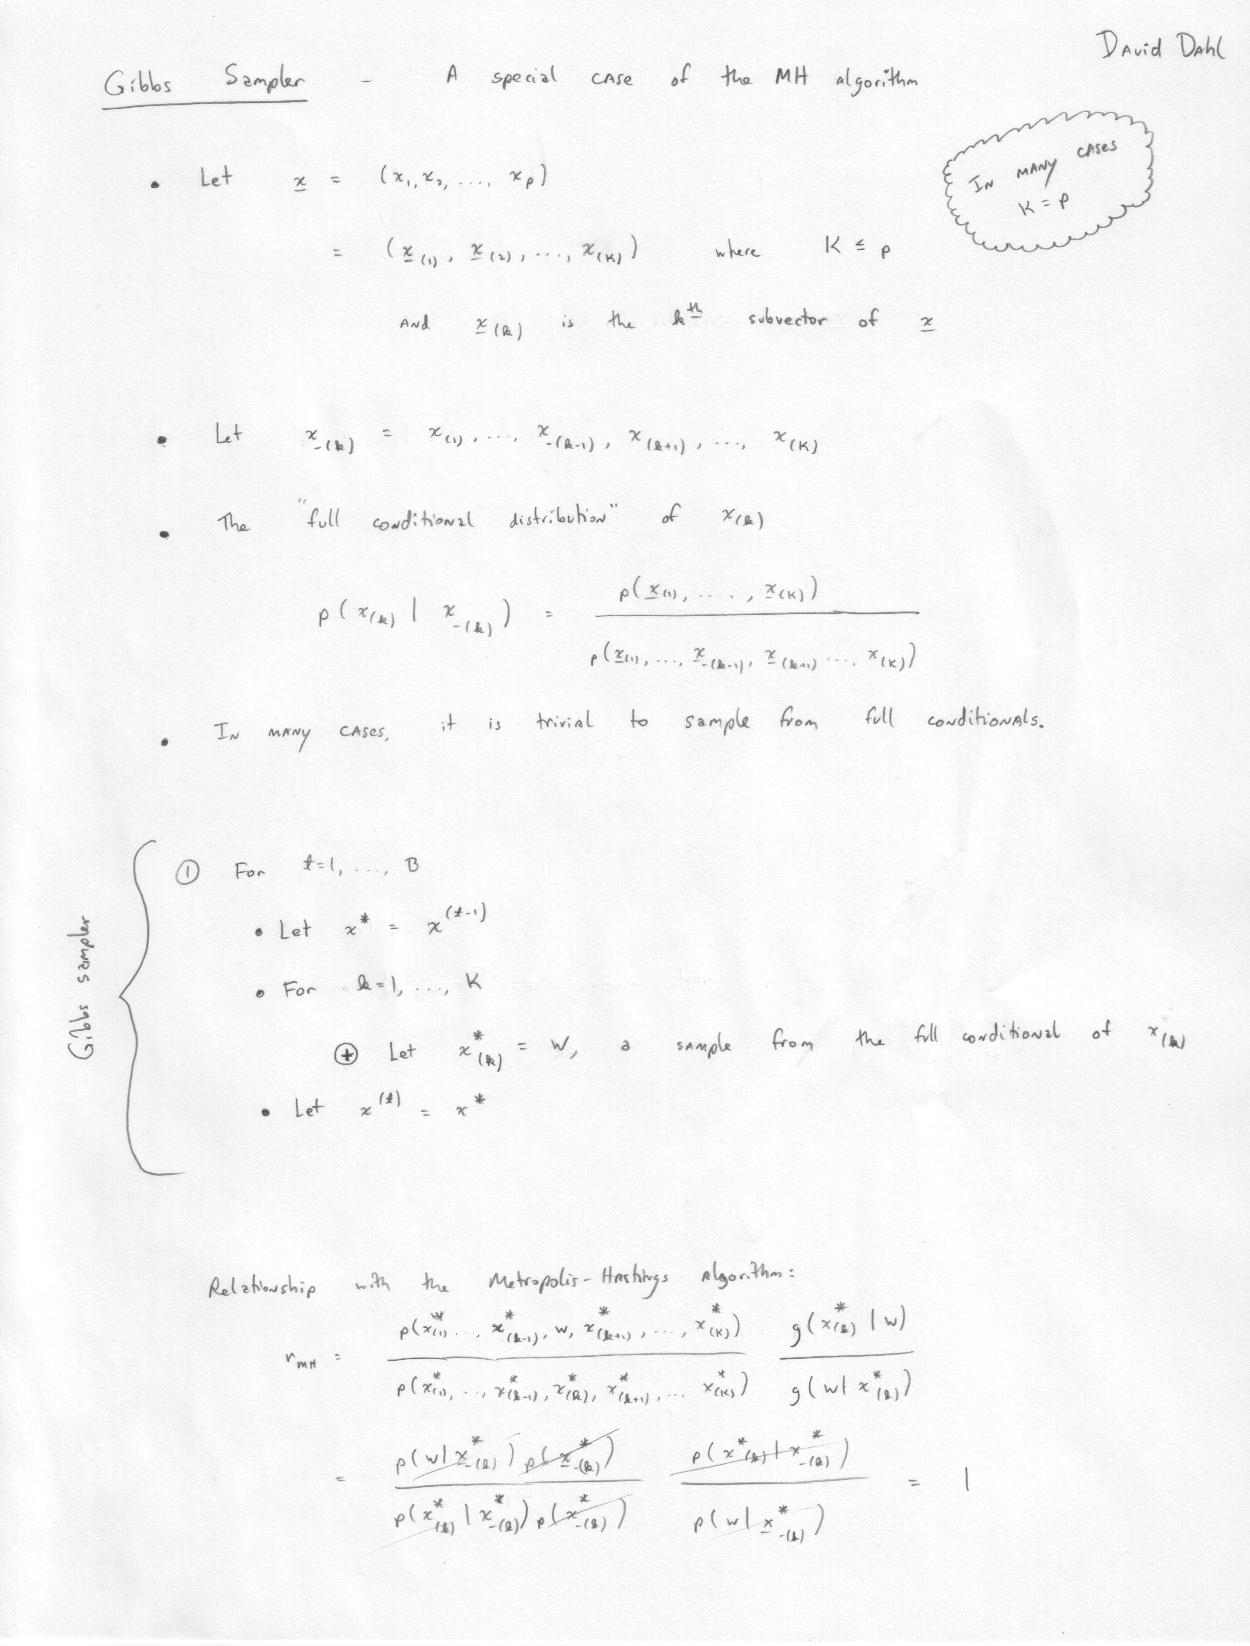 David Dahl
Gibbs Sampler - A special case of the MH algorithm
In many cases
K = p
• Let x̲ = (x₁, x₂, ..., xₚ)
= (x̲₍₁₎, x̲₍₂₎, ..., x₍K₎) where K ≤ p
and x̲₍k₎ is the kth subvector of x̲
• Let x_-(k) = x_(1), ..., x_-(k-1), x_(k+1), ..., x_(K)
• The "full conditional distribution" of x_(k)
p(x_(k) | x_-(k)) = p(x̲_(1), ...., x̲_(K)) / p(x̲_(1), ..., x̲_-(k-1), x̲_(k+1) ..., x_(K))
• In many cases, it is trivial to sample from full conditionals.
Gibbs sampler
① For t=1, ..., B
• Let x* = x^(t-1)
• For k=1, ..., K
⊕ Let x*_(k) = w, a sample from the full conditional of x_(k)
• Let x^(t) = x*
Relationship with the Metropolis-Hastings algorithm:
r_MH = p(x*_(1) ..., x*_(k-1), w, x*_(k+1), ..., x*_(K)) / p(x*_(1), ..., x*_(k-1), x*_(k), x*_(k+1), ... x*_(K)) g(x*_(k) | w) / g(w | x*_(k))
= p(w | x̲*_-(k)) p(x̲*_-(k)) / p(x*_(k) | x*_-(k)) p(x*_-(k)) p(x*_(k) | x*_-(k)) / p(w | x̲*_-(k)) = 1